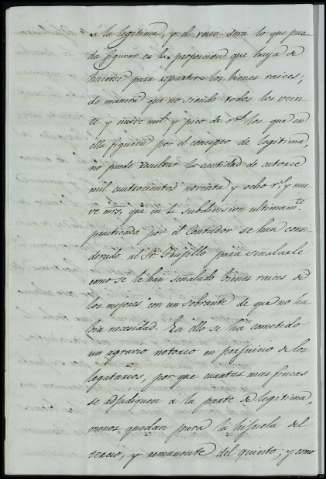 á la legitima, y de raices sera lo que pue
da figurar en la proporcion que haya de
hacerse para repartir los bienes raices;
de manera que no siendo todos los vein
te y nueve mil y pico de r.s los que en
ella figuren por el consegro de legitima
no puede resultar la cantidad de catorce
mil cuatrocientos noventa y ocho r.s y nu
ve mrs, que en la subdivision ultimam.te
practicada por el Contador se han con
siderado al Sr Trujillo para señalarle
como se le han señalado bienes raices de
los mejores con un sobrante de que no ha
bia necesidad. En ello se ha causado
un agravio notorio en perjuicio de los
legatarios, por que cuantas mas fincas
se adjudiquen á la parte de legitima,
menos quedan para la hijuela del
tercio, y remanente del quinto; y como